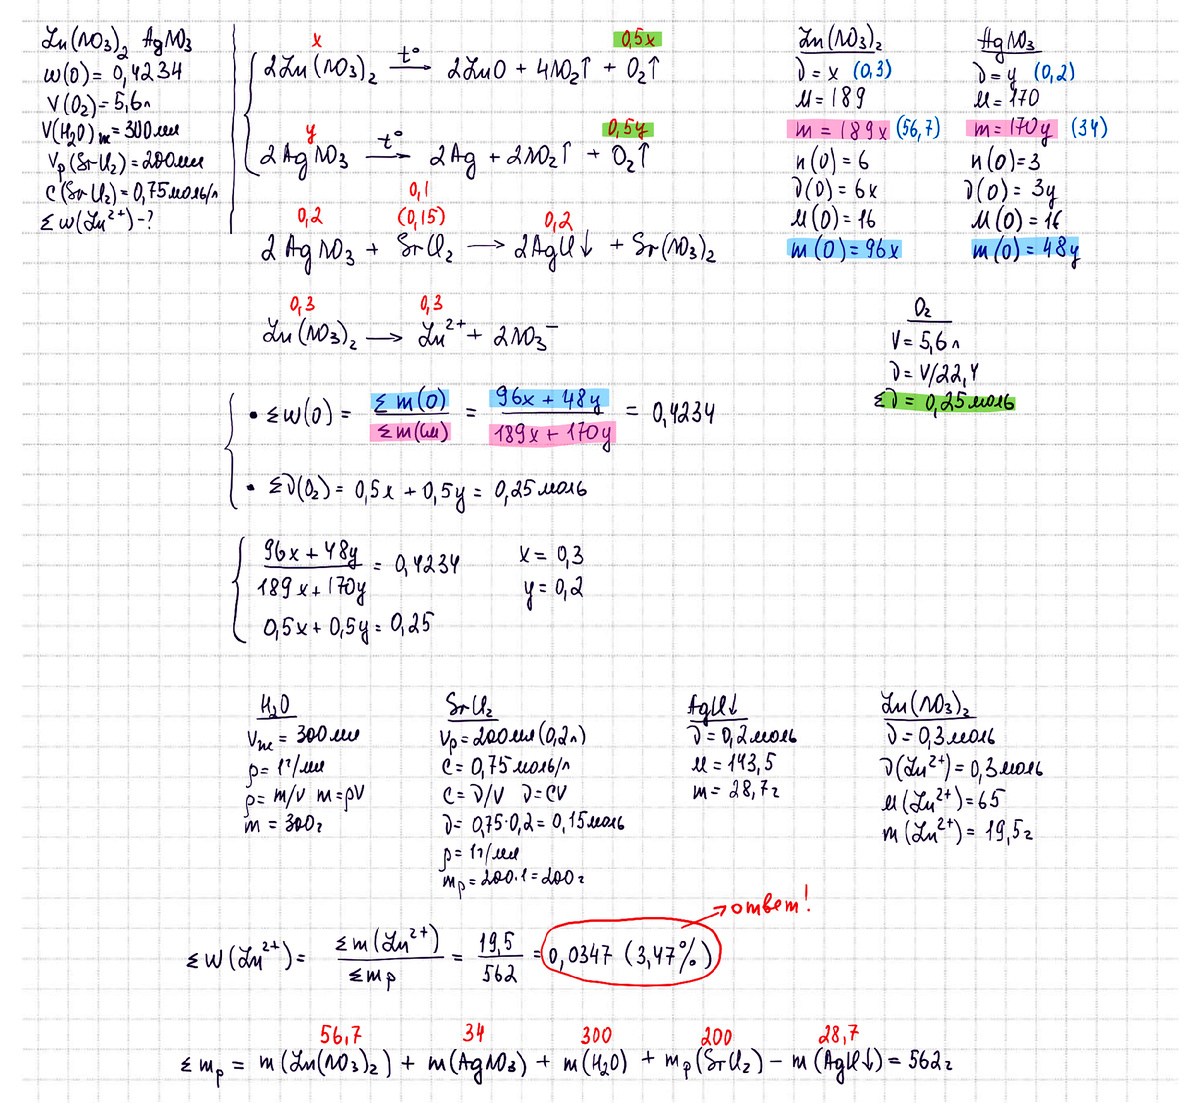 Zn(NO₃)₂ AgNO₃
w(O) = 0,4234
V(O₂) = 5,6л
V(H₂O)ж = 300мл
Vр(SrCl₂) = 200мл
c(SrCl₂) = 0,75моль/л
Σw(Zn²⁺) - ?
x
0,5x
2Zn(NO₃)₂ t° → 2ZnO + 4NO₂↑ + O₂↑
y
0,5y
2AgNO₃ t° → 2Ag + 2NO₂↑ + O₂↑
0,1
0,2 (0,15) 0,2
2AgNO₃ + SrCl₂ → 2AgCl↓ + Sr(NO₃)₂
0,3 0,3
Zn(NO₃)₂ → Zn²⁺ + 2NO₃⁻
Zn(NO₃)₂
ν = x (0,3)
M = 189
m = 189x (56,7)
n(O) = 6
ν(O) = 6x
M(O) = 16
m(O) = 96x
AgNO₃
ν = y (0,2)
M = 170
m = 170y (34)
n(O) = 3
ν(O) = 3y
M(O) = 16
m(O) = 48y
O₂
V = 5,6л
ν = V/22,4
Σν = 0,25моль
• Σw(O) = Σm(O) / Σm(см) = 96x + 48y / 189x + 170y = 0,4234
• Σν(O₂) = 0,5x + 0,5y = 0,25моль
96x + 48y / 189x + 170y = 0,4234
0,5x + 0,5y = 0,25
x = 0,3
y = 0,2
H₂O
Vж = 300мл
ρ = 1г/мл
ρ = m/V m = ρV
m = 300г
SrCl₂
Vр = 200мл (0,2л)
c = 0,75моль/л
c = ν/V ν = cV
ν = 0,75·0,2 = 0,15моль
ρ = 1г/мл
mр = 200·1 = 200г
AgCl↓
ν = 0,2моль
M = 143,5
m = 28,7г
Zn(NO₃)₂
ν = 0,3моль
ν(Zn²⁺) = 0,3моль
M(Zn²⁺) = 65
m(Zn²⁺) = 19,5г
→ ответ!
Σw(Zn²⁺) = Σm(Zn²⁺) / Σmр = 19,5 / 562 = 0,0347 (3,47%)
56,7 34 300 200 28,7
Σmр = m(Zn(NO₃)₂) + m(AgNO₃) + m(H₂O) + mр(SrCl₂) - m(AgCl↓) = 562г